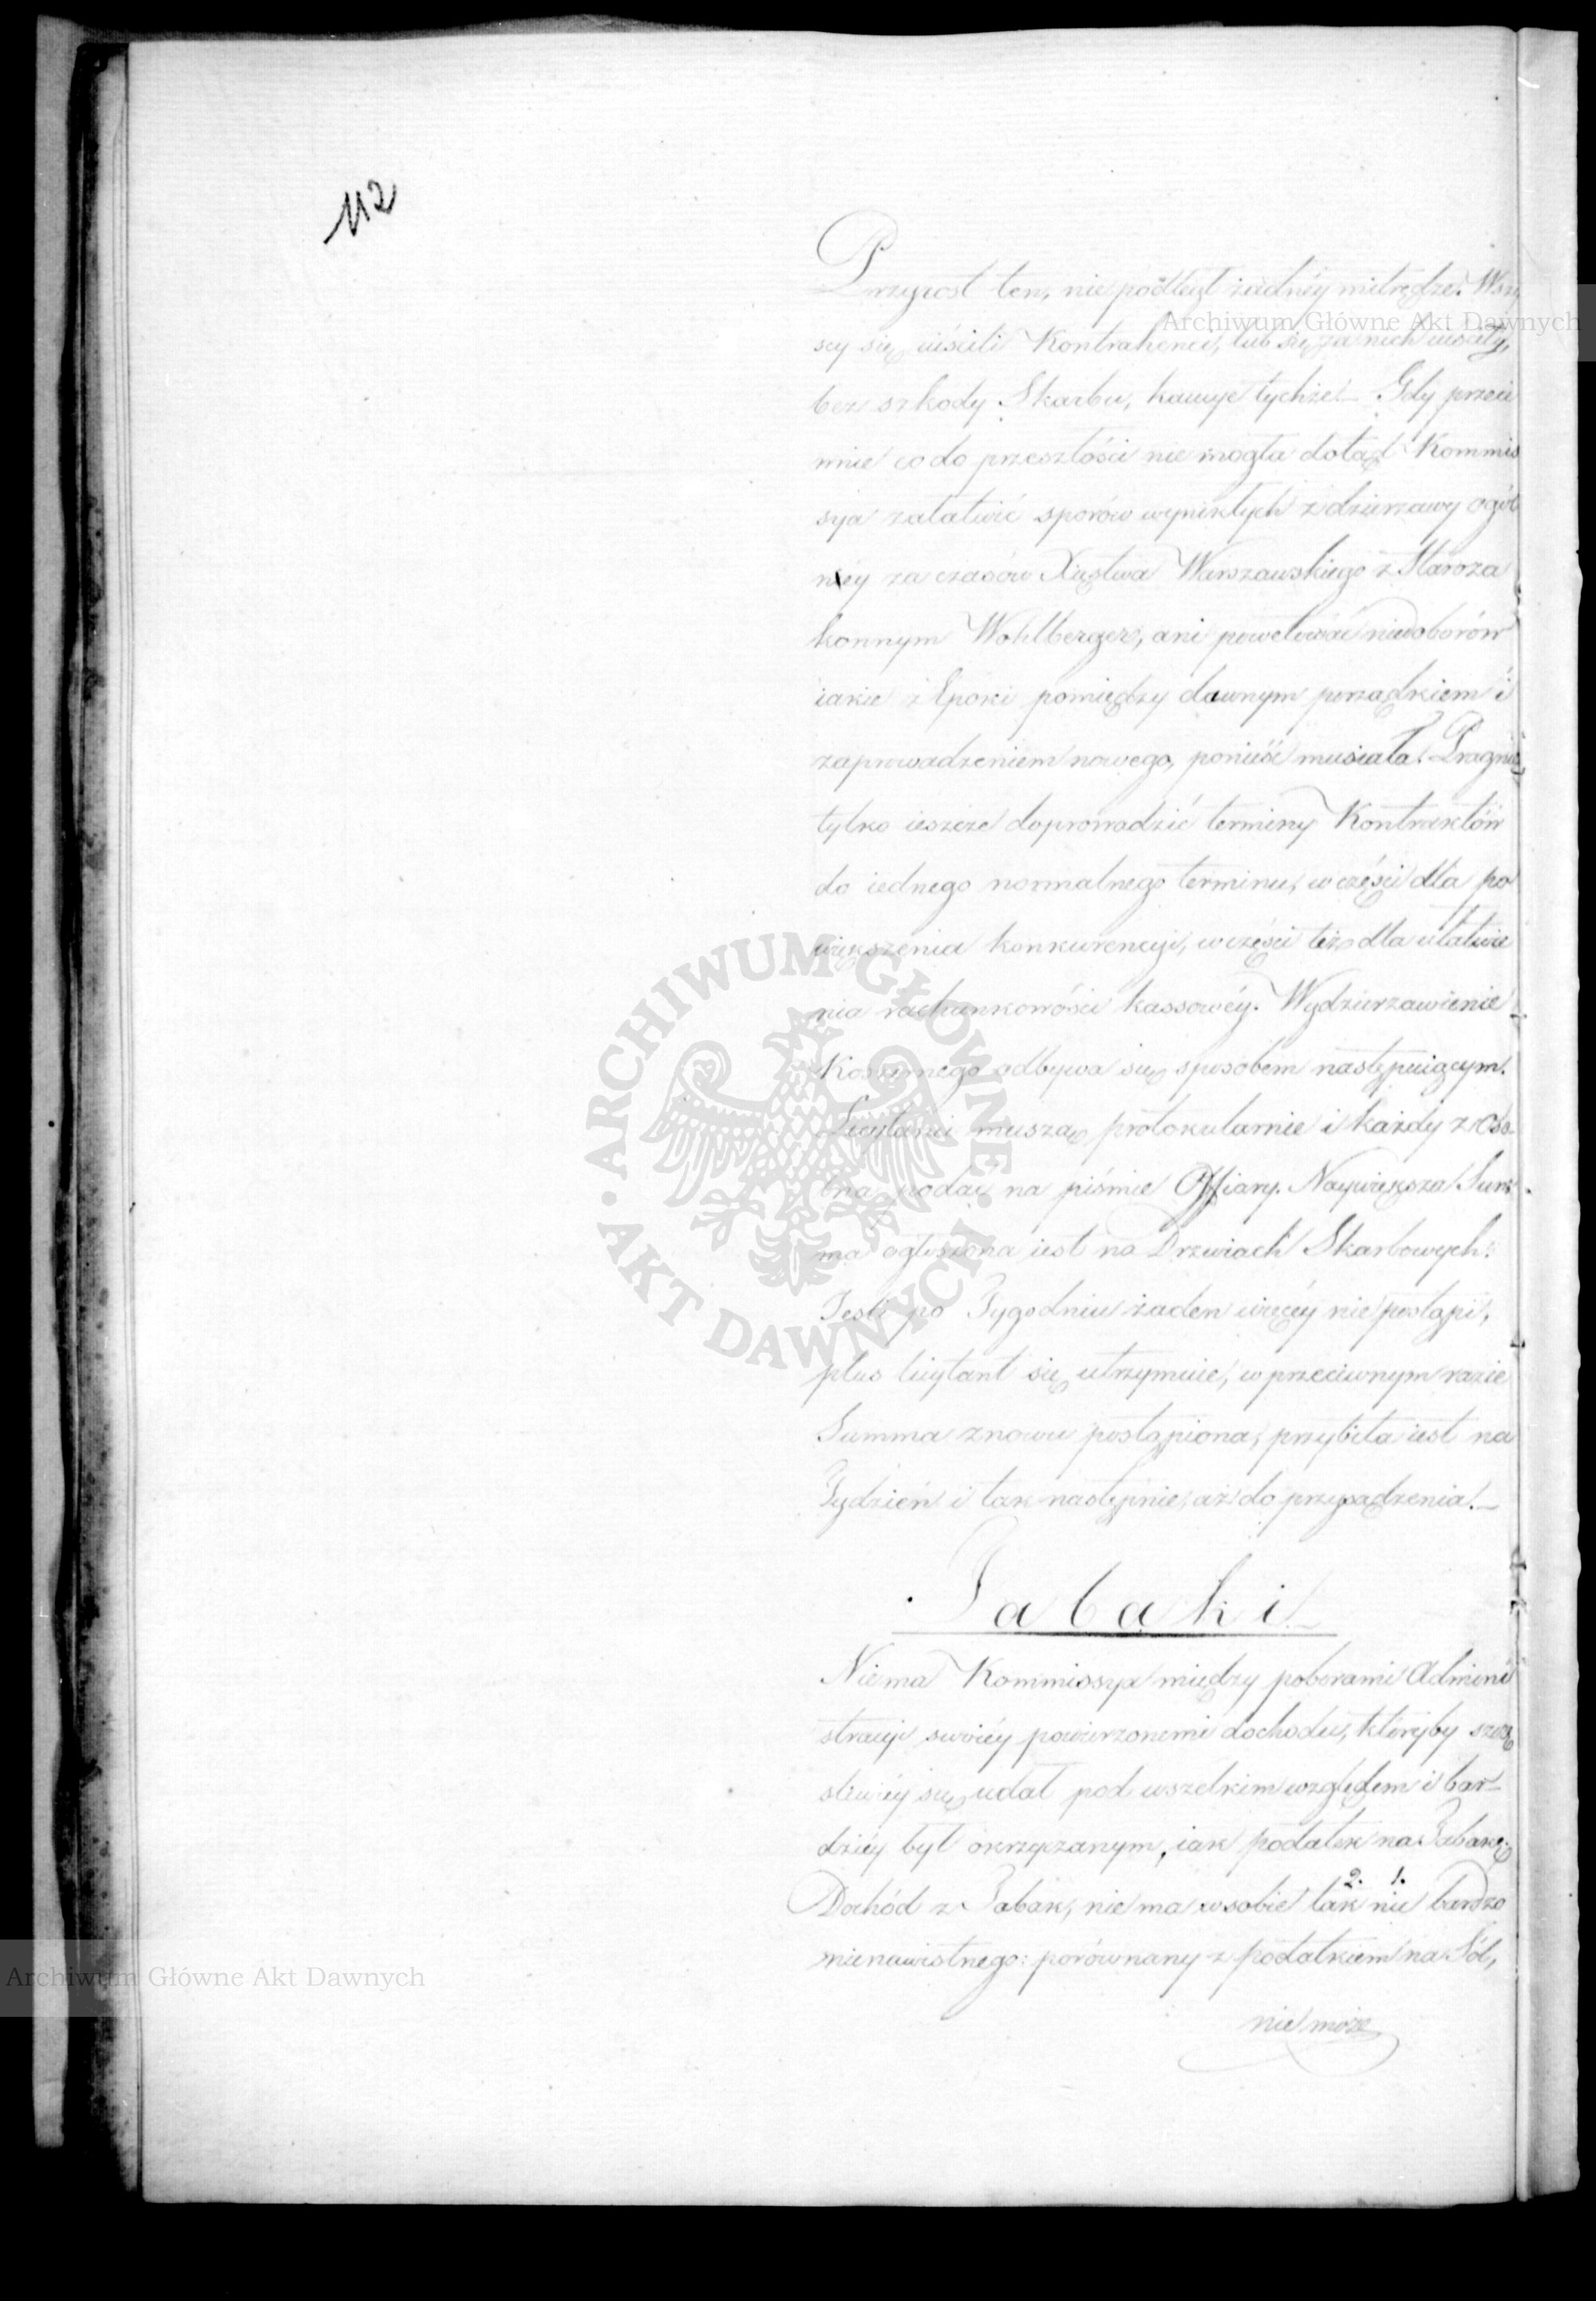 112
Przyrost ten, nie podległ żadnéy mitrędze. Wszy
scy się uiścili Kontrahenci, lub się za nich uiściły,
bez szkody Skarbu, kaucye tychże. – Gdy przeci
wnie co do przeszłości nie mogła dotąd Kommis
sya załatwić sporów wynikłych z dzierzawy ogól
néy za czasów Xięstwa Warszawskiego z Staroza
konnym Wohlberger, ani powetować niedoborów
iakie z Epoki pomiędzy dawnym porządkiem i
zaprowadzeniem nowego, ponieść musiała. Pragnie
tylko ieszcze doprowadzić terminy Kontraktów
do iednego normalnego terminu, w części dla po
większenia konkurencyi, w części też dla ułatwie
nia rachunkowości kassowéy. Wydzierzawienie
Koszernego odbywa się sposobem następuiącym.
Licytanci muszą protokularnie i każdy z Oso-
bna podać na piśmie Offiary. Naywiększa Sum
ma ogłoszona iest na Drzwiach Skarbowych.
Jeśli po Tygodniu żaden więcéy nie postąpi,
plus licytant się utrzymuie, w przeciwnym razie
Summa znowu postąpiona, przybita iest na
Tydzień i tak następnie, aż do przysądzenia. –
Tabaki
Niema Kommissya między poborami Admini
stracyi swoiéy powierzonemi dochodu, któryby szczę
śliwiéy się udał pod wszelkim względem i bar-
dziéy był okrzyczanym, iak podatek na Tabakę.
2. 1.
Dochód z Tabak, nie ma w sobie tak nic bardzo
nienawistnego: porównany z podatkiem na Sól,
nie może
Archiwum Główne Akt Dawnych
Archiwum Główne Akt Dawnych
ARCHIWUM GŁÓWNE · AKT DAWNYCH ·